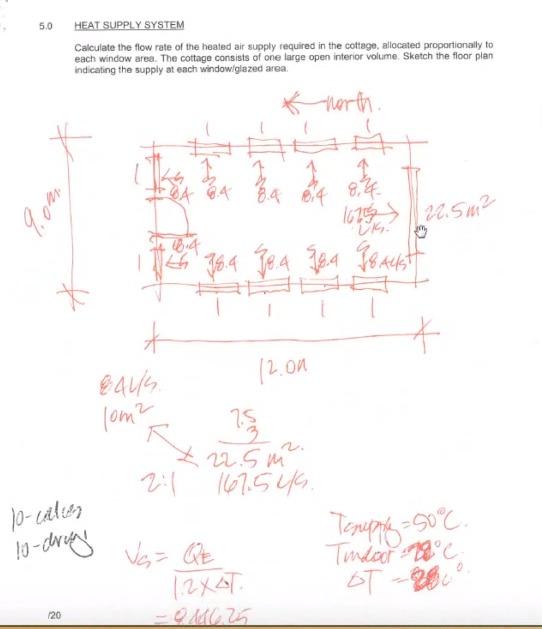 5.0 HEAT SUPPLY SYSTEM
Calculate the flow rate of the heated air supply required in the cottage, allocated proportionally to
each window area. The cottage consists of one large open interior volume. Sketch the floor plan
indicating the supply at each window/glazed area.
north.
1 1 1 1
1
8.4 8.4 8.4 8.4 8.4
9.0m
167.5
L/s.
22.5m²
8.4
1 8.4 8.4 8.4 8.4 L/s
1 1 1 1
12.0m
84 L/s.
10m²
7.5
3
22.5 m².
2:1 167.5 L/s.
10-calcs
10-drwg
Tsupply = 50°C.
Vs = QE
1.2 x ΔT.
Tindoor = 22°C.
ΔT = 28 C°.
/20